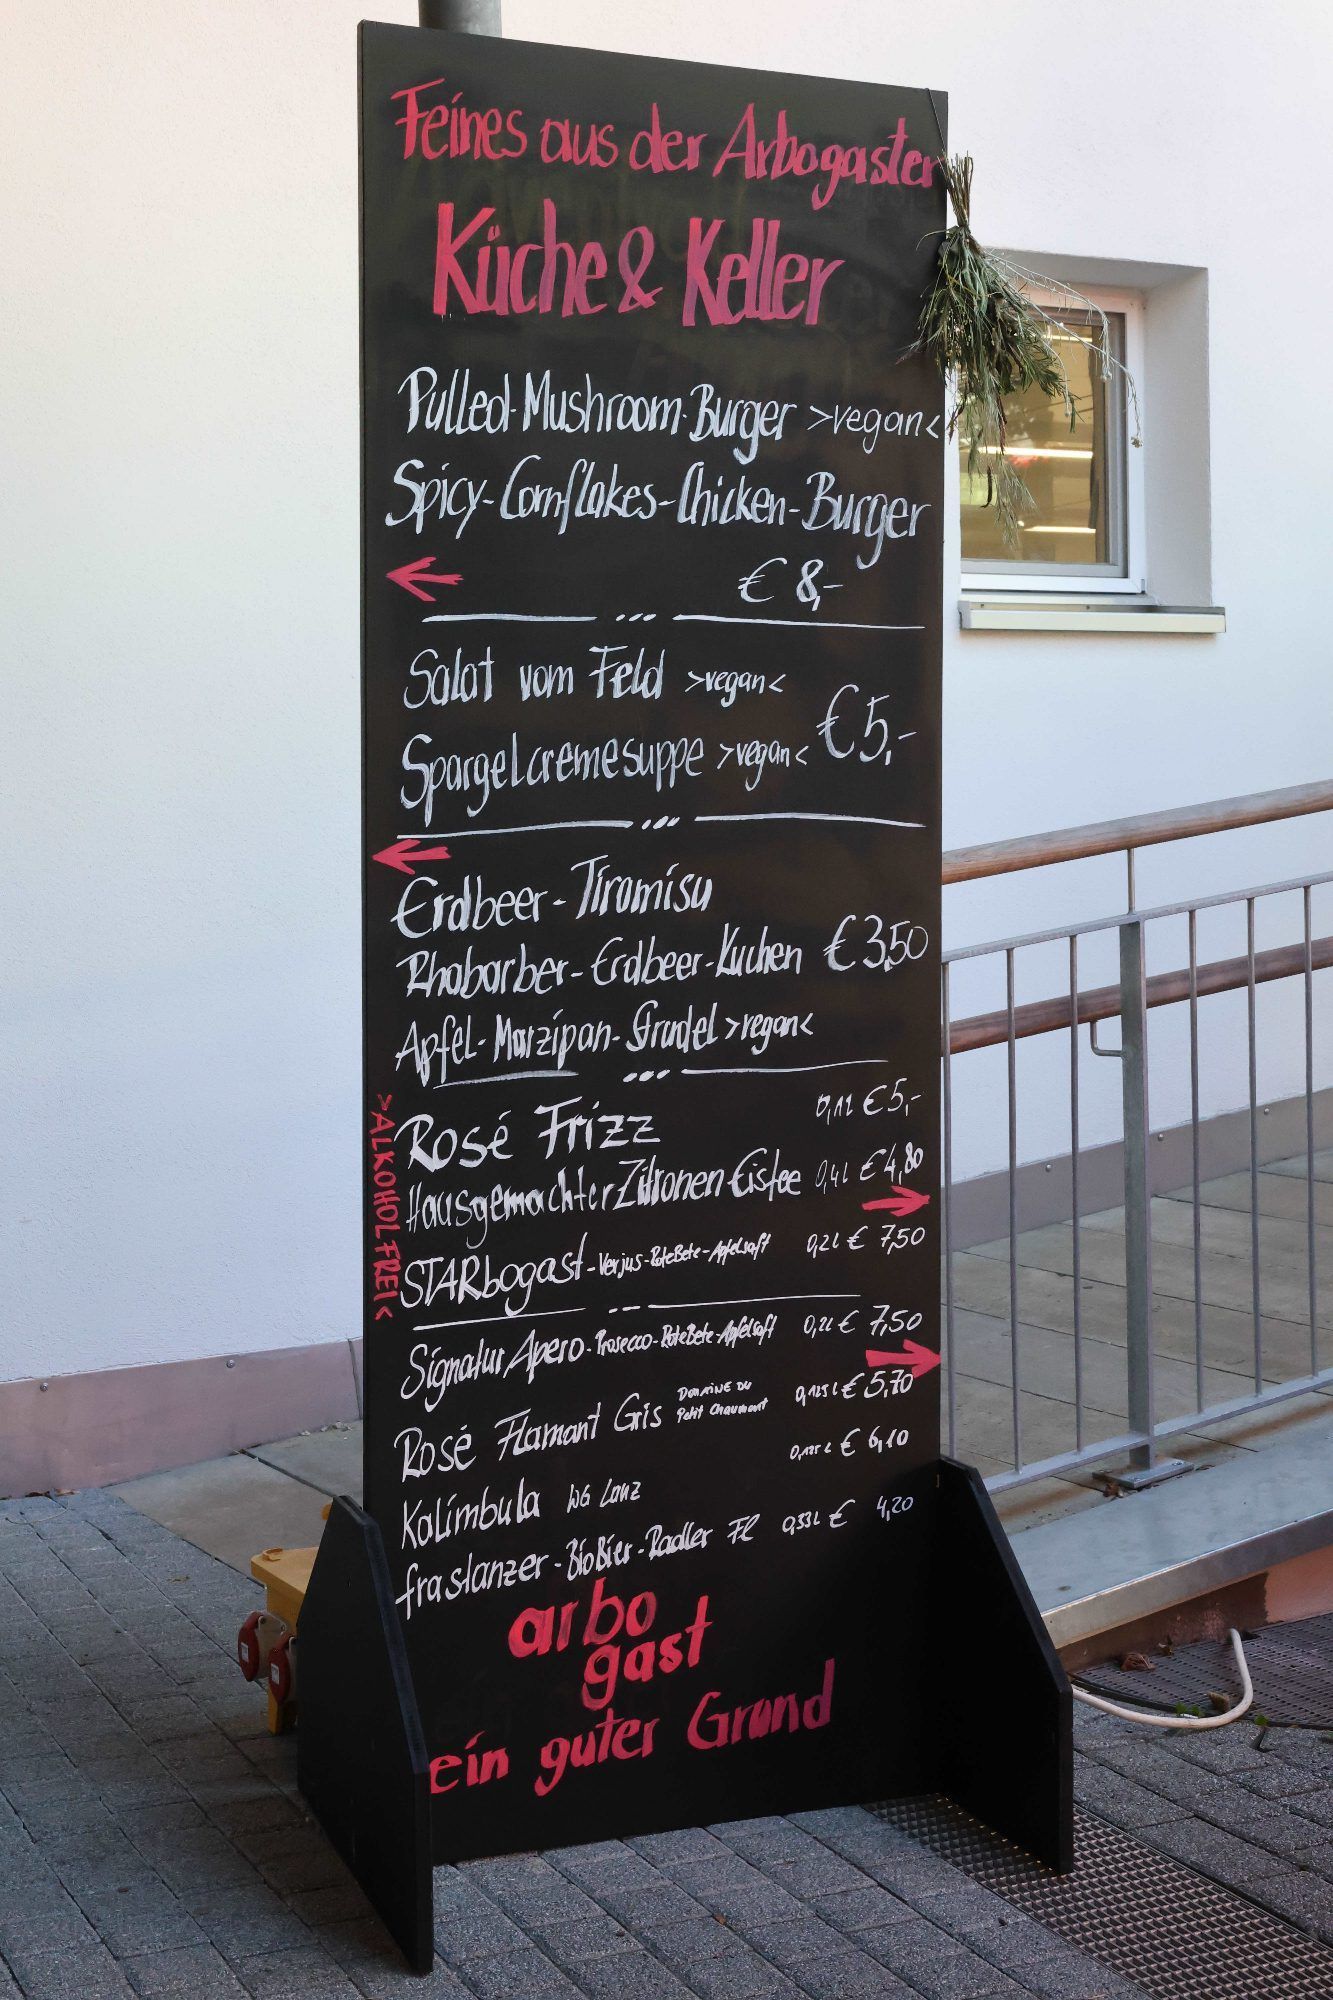 Feines aus der Arbogaster
Küche & Keller
Pulled-Mushroom-Burger >vegan<
Spicy-Cornflakes-Chicken-Burger
€ 8,-
Salat vom Feld >vegan<
€ 5,-
Spargelcremesuppe >vegan<
Erdbeer-Tiramisu
Rhabarber-Erdbeer-Kuchen € 3,50
Apfel-Marzipan-Strudel >vegan<
>ALKOHOLFREI<
Rosé Frizz 0,1l € 5,-
Hausgemachter Zitronen Eistee 0,4l € 4,80
STARbogast-Verjus-RoteBete-Apfelsaft 0,2l € 7,50
Signatur Apero-Prosecco-RoteBete-Apfelsaft 0,2l € 7,50
Rosé Flamant Gris Domaine du Petit Chaumont 0,125l € 5,70
Kalimbula WG Lanz 0,125l € 6,10
frastanzer-BioBier-Radler Fl 0,33l € 4,20
arbo
gast
ein guter Grund